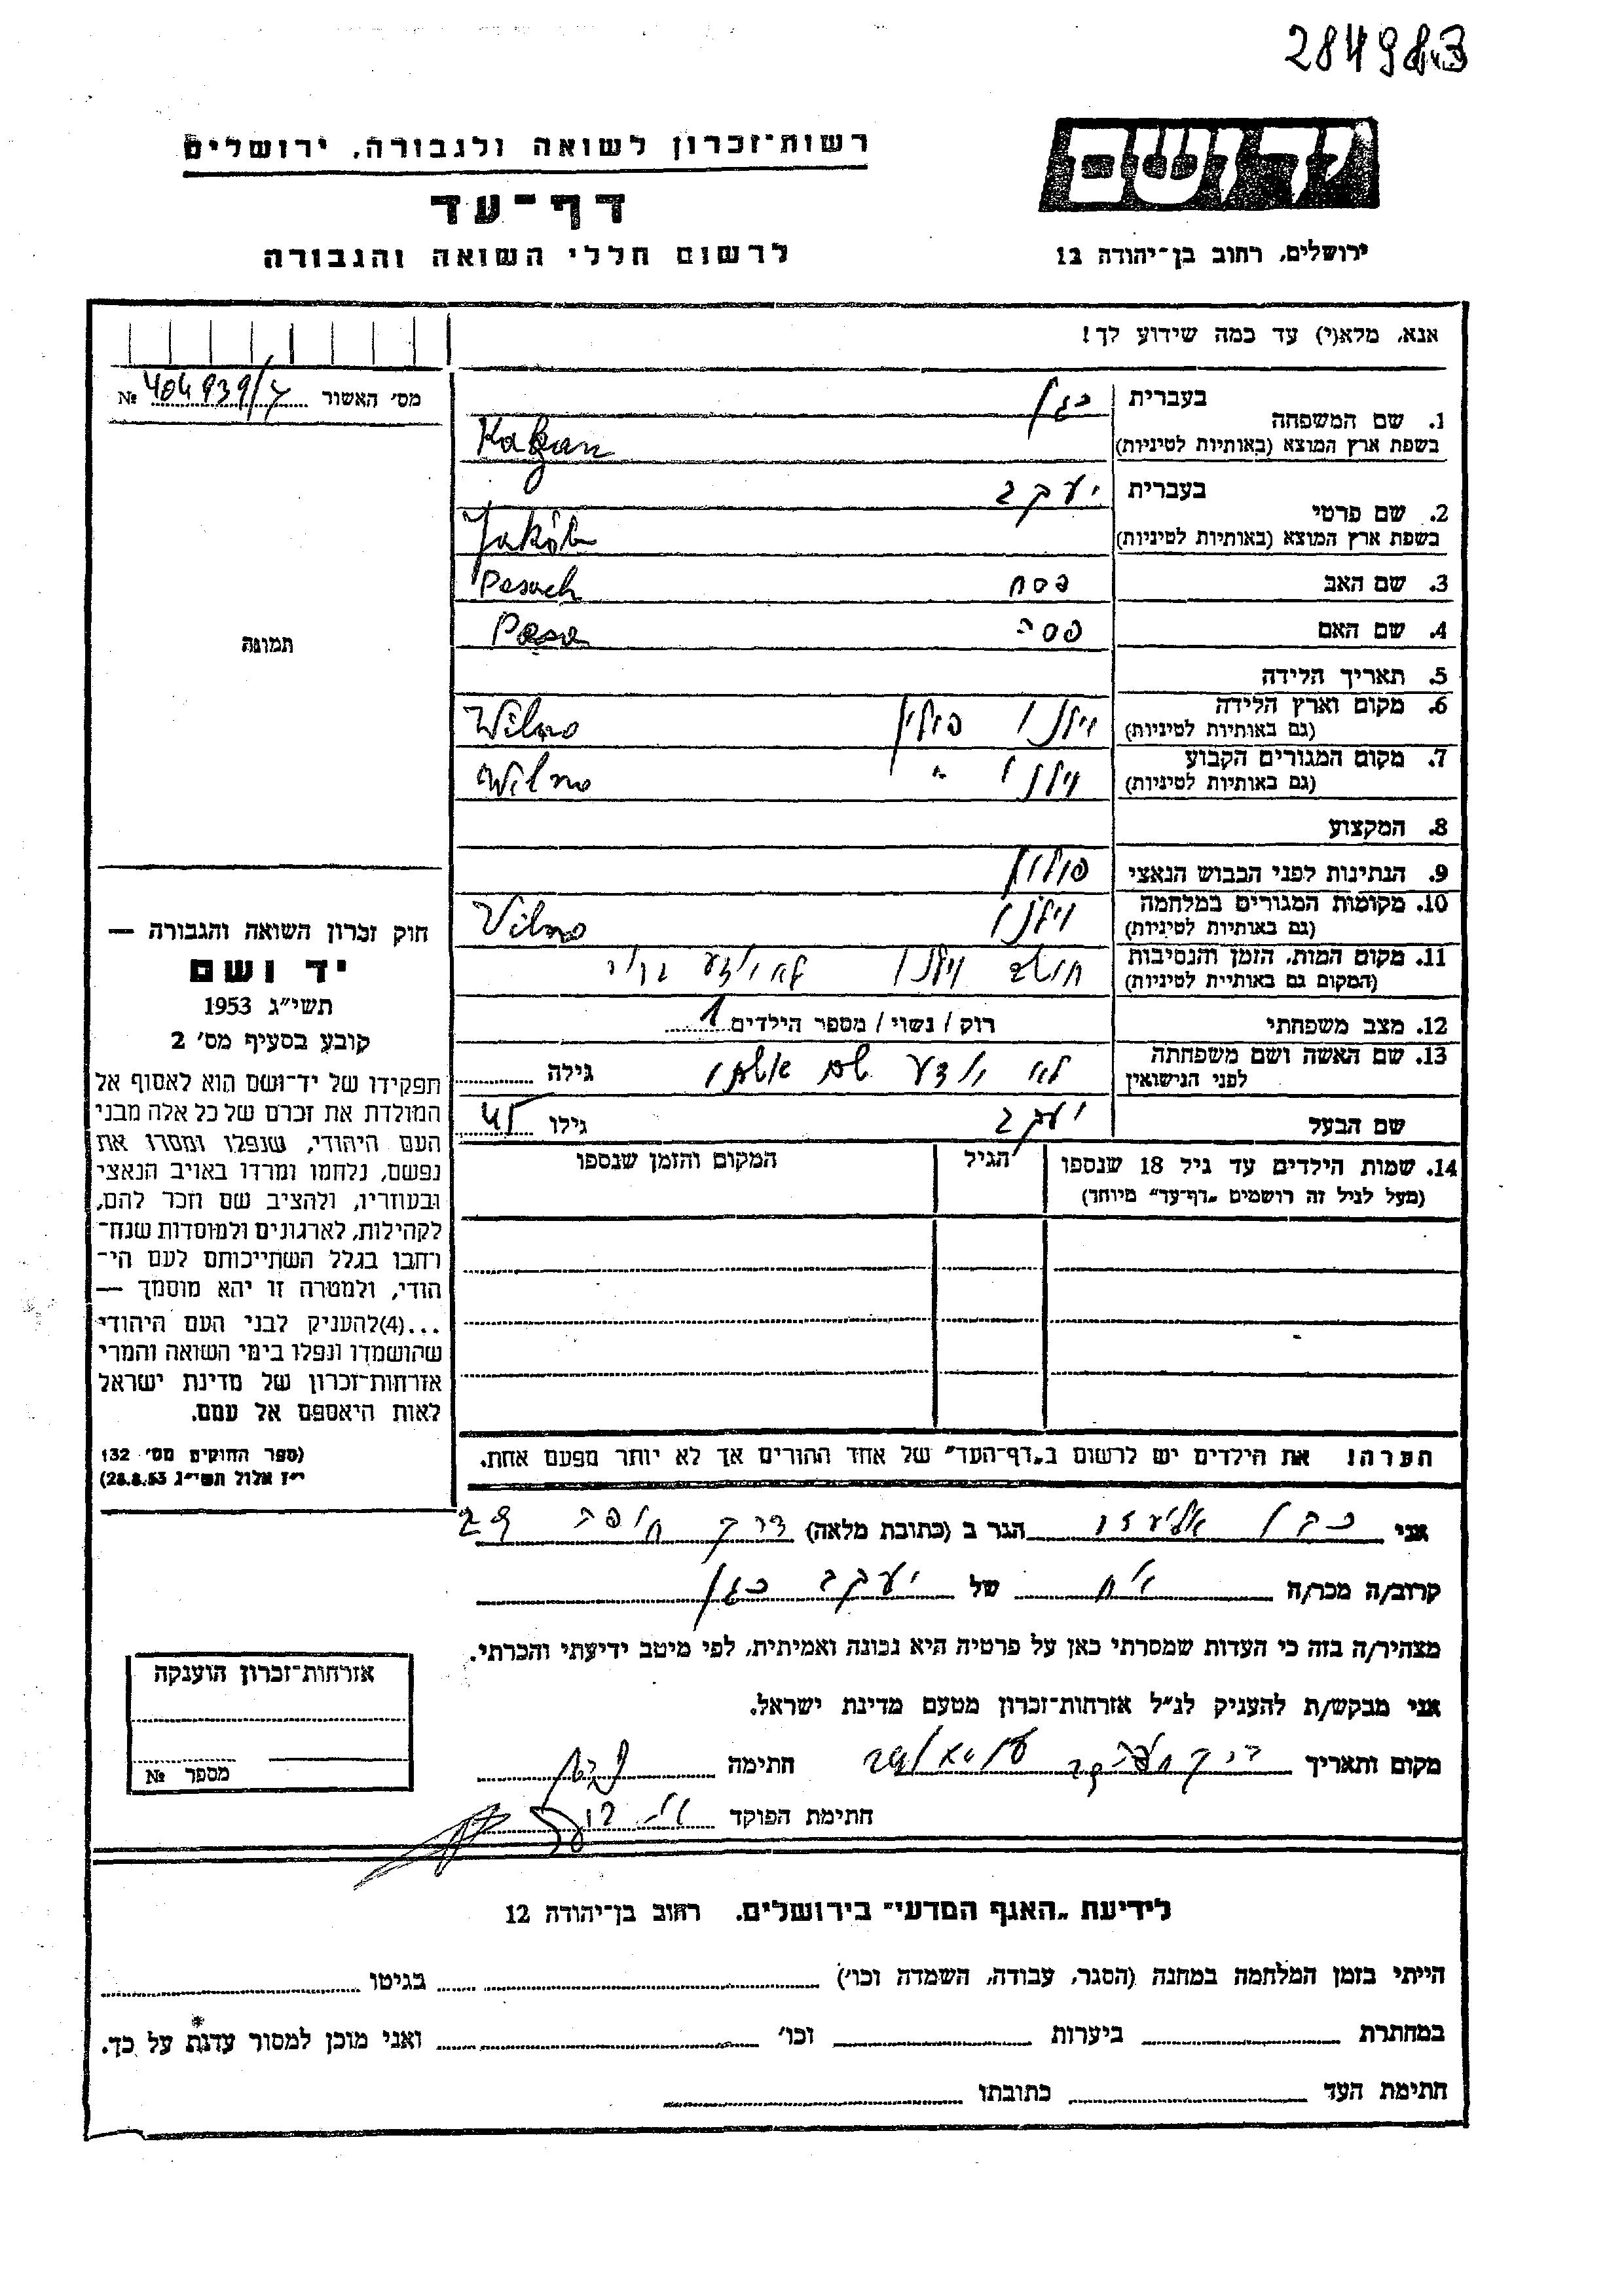 284983
יד ושם
רשות־זכרון לשואה ולגבורה, ירושלים
דף־עד
לרשום חללי השואה והגבורה
ירושלים, רחוב בן־יהודה 12
אנא, מלא(י) עד כמה שידוע לך!
מס׳ האשור № 404939/
1. שם המשפחה בעברית כגן
בשפת ארץ המוצא (באותיות לטיניות) Kagan
2. שם פרטי בעברית יעקב
בשפת ארץ המוצא (באותיות לטיניות) Jakób
3. שם האב פסח Pesach
4. שם האם פסיה Pesa
תמונה
5. תאריך הלידה
6. מקום וארץ הלידה וילנו פולין Wilno
(גם באותיות לטיניות)
7. מקום המגורים הקבוע וילנו " Wilno
(גם באותיות לטיניות)
8. המקצוע
9. הנתינות לפני הכבוש הנאצי פולין
10. מקומות המגורים במלחמה וילנו Vilno
(גם באותיות לטיניות)
11. מקום המות, הזמן והנסיבות וילנו
(המקום גם באותיות לטיניות)
12. מצב משפחתי רוק / נשוי / מספר הילדים 1
13. שם האשה ושם משפחתה לא יודע שם אשתו גילה
לפני הנישואין
שם הבעל יעקב גילו 45
14. שמות הילדים עד גיל 18 שנספו הגיל המקום והזמן שנספו
(מעל לגיל זה רושמים „דף־עד״ מיוחד)
חוק זכרון השואה והגבורה —
יד ושם
תשי״ג 1953
קובע בסעיף מס׳ 2
תפקידו של יד־ושם הוא לאסוף אל
המולדת את זכרם של כל אלה מבני
העם היהודי, שנפלו ומסרו את
נפשם, נלחמו ומרדו באויב הנאצי
ובעוזריו, ולהציב שם וזכר להם,
לקהילות, לארגונים ולמוסדות שנח־
רחבו בגלל השתייכותם לעם הי־
הודי, ולמטרה זו יהא מוסמך —
...(4)להעניק לבני העם היהודי
שהושמדו ונפלו בימי השואה והמרי
אזרחות־זכרון של מדינת ישראל
לאות היאספם אל עמם.
(ספר החוקים מס׳ 132
י״ז אלול תשי״ג 28.8.53)
הערה! את הילדים יש לרשום ב„דף־העד״ של אחד ההורים אך לא יותר מפעם אחת.
אני כגן הגר ב (כתובת מלאה) דרך חיפה 29
קרוב/ה מכר/ה אח של יעקב כגן
מצהיר/ה בזה כי העדות שמסרתי כאן על פרטיה היא נכונה ואמיתית, לפי מיטב ידיעתי והכרתי.
אני מבקש/ת להעניק לנ״ל אזרחות־זכרון מטעם מדינת ישראל.
מקום ותאריך חתימה
חתימת הפוקד
אזרחות־זכרון הוענקה
מספר №
לידיעת „האגף המדעי״ בירושלים. רחוב בן־יהודה 12
הייתי בזמן המלחמה במחנה (הסגר, עבודה, השמדה וכו׳) בגיטו
במחתרת ביערות וכו׳ ואני מוכן למסור עדות על כך.
חתימת העד כתובתו